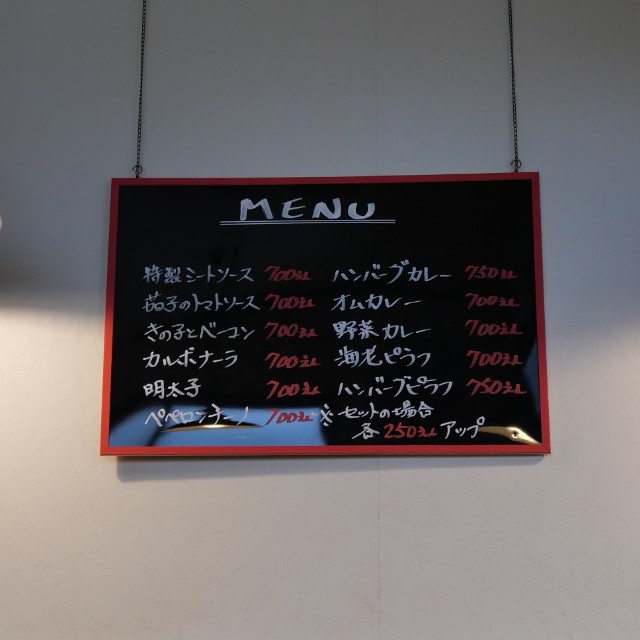 MENU
特製ミートソース 700えん
茄子のトマトソース 700えん
きの子とベーコン 700えん
カルボナーラ 700えん
明太子 700えん
ペペロンチーノ 700えん
ハンバーグカレー 750えん
オムカレー 700えん
野菜カレー 700えん
海老ピラフ 700えん
ハンバーグピラフ 750えん
※セットの場合
各250えんアップ